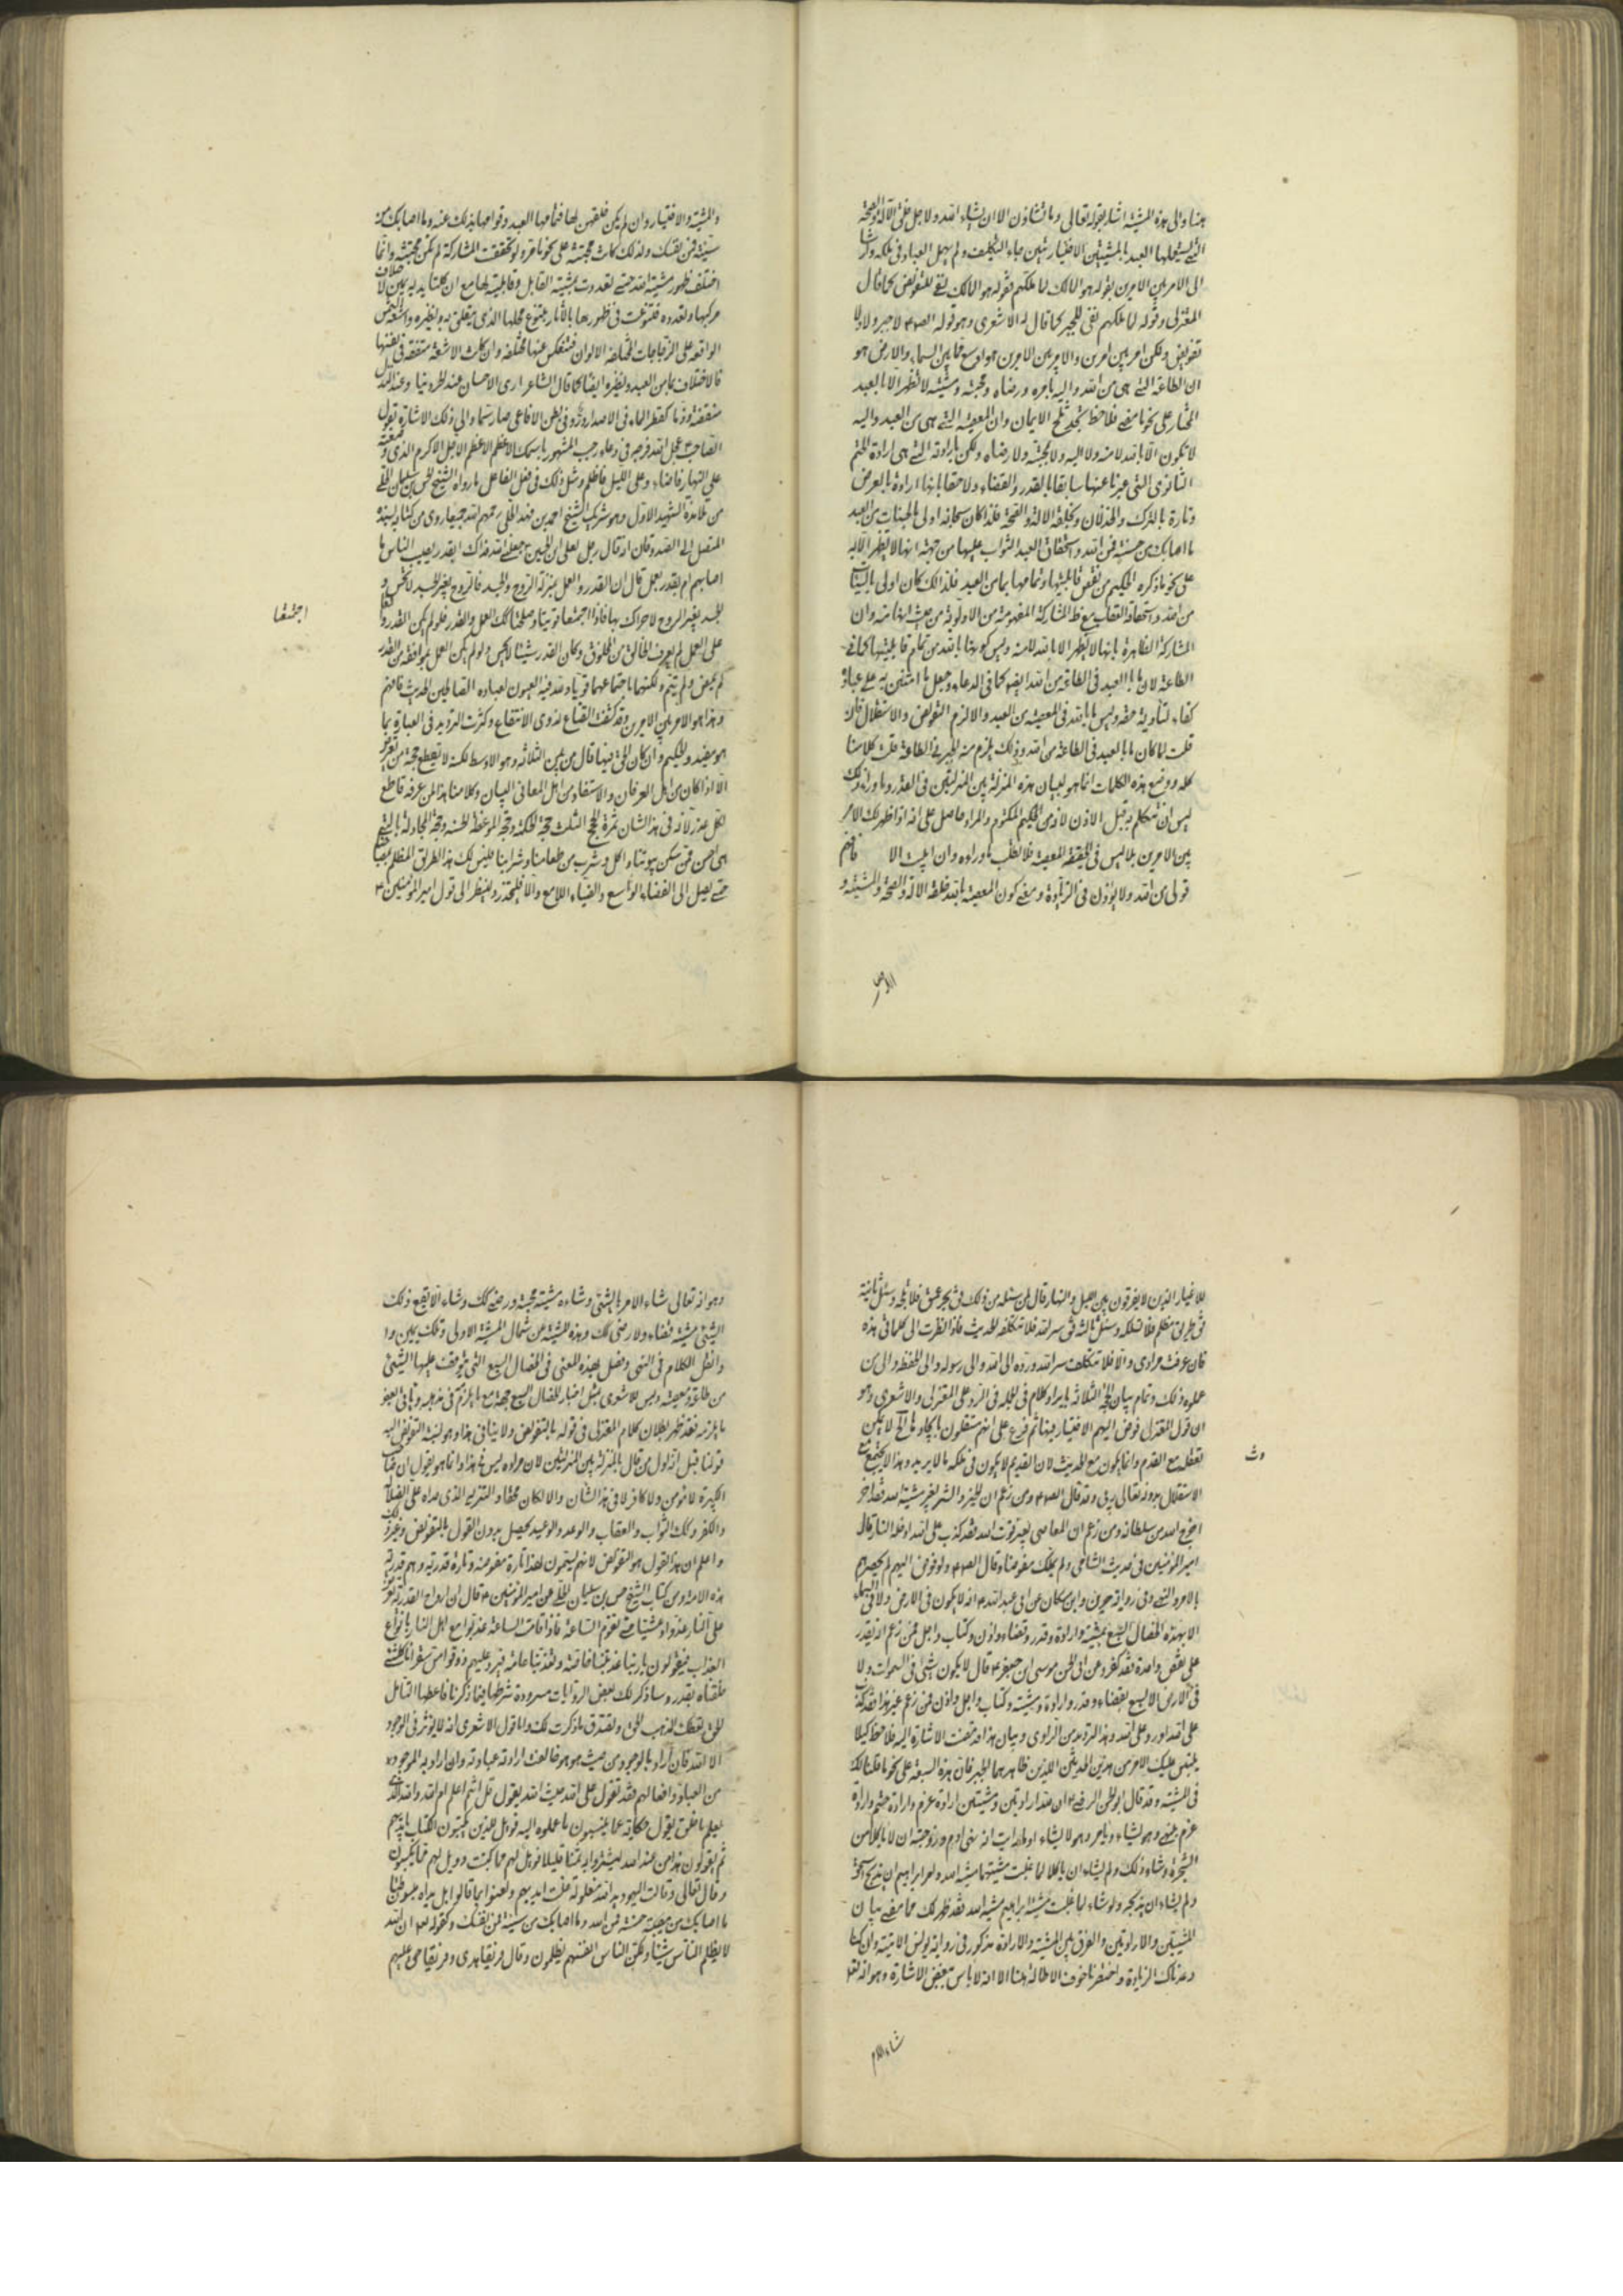 هنا والى هذه المشية اشار بقوله تعالى وما تشاؤن الا ان يشاء الله ولاجل خلق الآلة والصحة
التي يستعملها العبد بالمشيتين الاختياريتين جاء التكليف ولم يهمل العباد في ملكه واشار
الى الامر بين الامرين بقوله هو المالك لما ملكهم فقوله هو المالك نفى للتفويض كما قال
المعتزلى وقوله لما ملكهم نفى للجبر كما قال به الاشعرى وهو قوله الصادق لا جبر ولا
تفويض ولكن امر بين امرين والامر بين الامرين هو اوسع مما بين السماء والارض هو
ان الطاعة التي هى من الله واليه بامره ورضاه ومحبته ومشيته لا تظهر الا بالعبد
المختار على نحو ما مضى فلاحظ تجد ثلج الايمان وان المعصية التي هى من العبد واليه
لا تكون الا بالله لا منه ولا اليه ولا بمحبته ولا رضاه ولكن بارادته التي هى ارادة الحتم
الثانوى التي عبرنا عنها سابقا بالقدر والقضاء ولاحقا بانها ارادة بالعرض
وتارة بالترك والخذلان وتخلية الآلة والصحة فلذا كان سبحانه اولى بالحسنات من العبد
ما اصابك من حسنة فمن الله واستحقاق العبد الثواب عليها من جهة انها لا تظهر الا به
على نحو ما ذكره الحكيم من نقص قابليتها وتمامها بما من العبد فلذلك كان اولى بالسيئات
من الله واستحقاقه العقاب مع حفظ المشاركة المفهومة من الاولوية من حيث انها منه وان
المشاركة الظاهرة بانها لا تظهر الا بالله لا منه وليس كونها بالله من تمام قابليتها كما في
الطاعة لان ما بالعبد في الطاعة من الله ايضا كما في الدعاء وجعل ما امتن به على عباده
كفاء لتأدية حقه وليس ما بالله في المعصية من العبد والا لزم التفويض والاستقلال فان
قلت لما كان ما بالعبد في الطاعة من الله وذلك يلزم منه الجبر في الطاعة قلت كلامنا
كله ووضع هذه الكلمات انما هو لبيان هذه المنزلة بين المنزلتين في القدر وما وراء ذلك
ليس لنا ان نتكلم به قبل الاذن لانه من الحكيم المكتوم والمراد حاصل على انه اذا ظهر لك الامر
بين الامرين بلا لبس في الحقيقة المعصية فلا تطلب ما وراءه وان ابيت الا فافهم
قولى من الله ولا يؤذن في الزيادة ومعنى كون المعصية بالله خلقه الآلة والصحة والمشية و
الاختيار
والمشية والاختيار وان لم يكن خلقهن لها فتمامها العبد وقوامها بذلك عنه وما اصابك من
سيئة فمن نفسك ولذلك كانت محبته على نحو ما مر ولو تحققت المشاركة لم تكن محبته وانما
اختلف ظهور مشية الله حتى تعددت بمشية القابل وقابليته لها مع ان كلتا يديه يمين لاختلاف
مركبها وتعدده فتنوعت في ظهورها بالآثار بتنوع محلها الذي يتعلق به ونظيره واشعة الشمس
الواقعة على الزجاجات المختلفة الالوان فتنعكس عنها مختلفة وان كانت الاشعة متفقة في نفسها
فالاختلاف بما من العبد ونظيره ايضا كما قال الشاعر ارى الاحسان عند الحر دينا وعند النذل
منقصة وذما كقطر الماء في الاصداف در وفي بطن الافاعى صار سما والى ذلك الاشارة بقول
الصاحب عجل الله فرجه في دعاء رجب المشهور باسمك الاعظم الاعظم الاجل الاكرم الذي وضعته
على النهار فاضاء وعلى الليل فاظلم ومثل ذلك في فعل الفاعل ما رواه الشيخ حسن بن سليمان الحلى
من تلامذة الشهيد الاول وهو شريك الشيخ احمد بن فهد الحلى رحمهم الله جميعا روى من كتابه بسنده
المتصل الى الصدوق ان اذ قال رجل لعلى ابن الحسين جعلنى الله فداك ابقدر يصيب الناس ما
اصابهم ام بقدر بعمل قال ان القدر والعمل بمنزلة الروح والجسد فالروح بغير الجسد لا تحس و
الجسد بغير الروح لا حراك بها فاذا اجتمعا قويتا وصلحتا كذلك العمل والقدر فلو لم يكن القدر واقعا
اجتمعا
على العمل لم يعرف الخالق من المخلوق وكان القدر شيئا لا يحس ولو لم يكن العمل بموافقة من القدر
لم يمض ولم يتم ولكنهما باجتماعهما قويا ولله فيه العون لعباده الصالحين الحديث فافهم
وهذا هو الامر بين الامرين وقد كشفت القناع لذوى الانتفاع وكثرت الترديد في العبارة بما
هو مفيد والحكيم وان كان الحق فيها قال من بين الثلاثة وهو الاوسط لكنه لا تقطع حجة من تعزز
الا اذا كان من اهل العرفان والاستفاد من اهل المعاني والبيان وكلامنا هذا لمن عرفه قاطع
لكل عذر لانه في هذا الشان ثمرة الحجج الثلث حجة الحكمة وحجة الموعظة الحسنة وحجة المجادلة بالتي
هى احسن فمن سكن بيوتنا واكل وشرب من طعامنا وشرابنا فليسلك هذا الطريق المظلم بمصباحنا
حتى يصل الى الفضاء الواسع والضياء اللامع والا فليحذر ولينظر الى قول امير المؤمنين ع
للاغيار الذين لا يفرقون بين الليل والنهار قال لمن سئله من ذلك فقال بحر عميق فلا تلجه وسئل ثانية
فقال طريق مظلم فلا تسلكه وسئل ثالثة فقال سر الله فلا تتكلفه الحديث فاذا نظرت الى كلماتى هذه
فان عرفت مرادى والا فلا تتكلف سر الله ورده الى الله والى رسوله والى الحفظة والى من
علموه ذلك وتمام بيان الحجج الثلاثة بايراد كلام في الجملة في الرد على المعتزلى والاشعرى وهو
ان قول المعتزلى فوض اليهم الاختيار بنا ثم فرع على انهم مستقلون بايجاد ما الخ لا يمكن
تعقله مع القدم وانما يكون مع الحديث لان القديم لا يكون في ملكه ما لا يريد وهذا لا يجتمع مع
وث
الاستقلال بدونه تعالى ربى وقد قال الصادق ومن زعم ان الخير والشر بغير مشية الله فقد اخر
اخرج الله من سلطانه ومن زعم ان المعاصى بغير قوة الله فقد كذب على الله ادخله النار قال
امير المؤمنين في حديث الشامى ولم يملك مفوضا وقال الصادق ع لو فوض اليهم لم يحصرهم
بالامر والنهى وفي رواية حريز وابن مسكان عن ابى عبد الله ع انه لا يكون في الارض ولا في السماء
الا بهذه الخصال السبع بمشية وارادة وقدر وقضاء واذن وكتاب واجل فمن زعم انه يقدر
على نقض واحدة فقد كفر وعن ابى الحسن موسى ابن جعفر ع قال لا يكون شئ في السموات ولا
في الارض الا بسبع بقضاء وقدر وارادة ومشية وكتاب واجل واذن فمن زعم غير هذا فقد كذب
على الله او رد على الله وهذا الترديد من الراوى وبيان هذا قد تقدمت الاشارة اليه فلاحظ كيلا
يلتبس عليك الامر من هذين الحديثين اللذين ظاهرهما الجبر فان هذه السبعة على نحو ما قلنا لك
في المشية وقد قال ابو الحسن الرضا ع ان لله ارادتين ومشيتين ارادة عزم وارادة حتم وارادة
عزم ينهى وهو يشاء ويامر وهو لا يشاء اوما رايت انه نهى ادم وزوجته ان لا ياكلا من
الشجرة وشاء ذلك ولم يشاء ان ياكلا لما غلبت مشيتهما مشية الله وامر ابراهيم ان يذبح اسحق
ولم يشاء ان يذبحه ولو شاء لما غلبت مشية ابراهيم مشية الله فقد ظهر لك مما مضى بيان
المشيتين والارادتين والفرق بين المشية والارادة مذكور في رواية يونس الاتية وان كنا
وعدناك الزيادة واختصرنا خوف الاطالة هنا الا انه لا باس ببعض الاشارة وهو انه تعالى
شاء الامر
وهو انه تعالى شاء الامر بالشئ وشاءه مشية محبة ورضى كذلك وشاء ان لا يقع ذلك
الشئ مشية قضاء ولا رضى كذلك وهذه المشية من شمال المشية الاولى وتلك يمين وا
وانظر الكلام في النهى وفصل بهذه المعنى في الخصال السبع التي يتوقف عليها الشئ
من طاعة ومعصية وليس للاشعرى بمثل اخبار الخصال السبع حجة مع ما يلزم في مذهبه وباقى بعض
ما يلزمه فقد ظهر بطلان كلام المعتزلى في قوله بالتفويض ولا ينافى هذا وهو لنسبة التفويض اليه
قولنا قبل انه اول من قال بالمنزلة بين المنزلتين لان مراده ليس في هذا وانما هو بقول ان صاحب
الكبيرة لا مؤمن ولا كافر لا في هذا الشان والا لكان محقا والتنزيه الذي مداه على الضلال
والكفر وكذلك الثواب والعقاب والوعد والوعيد يحصل بدون القول بالتفويض وغير ذلك
واعلم ان هذا القول هو التفويض لانهم يسمون لهذا تارة مفوضة وتارة قدرية وهم قدرية
هذه الامة ومن كتاب الشيخ حسن بن سليمان الحلى عن امير المؤمنين ع قال ان ارواح القدرية تعرض
على النار غدوا وعشيا حتى تقوم الساعة فاذا قامت الساعة عذبوا مع اهل النار بانواع
العذاب فيقولون يا ربنا عذبتنا خاصة وتعذبنا عامة فيرد عليهم ذوقوا مس سقر انا كل شئ
خلقناه بقدر وساذكر لك بعض الروايات مسرودة شرطها فيما ذكرنا فاعطها التامل
الحق يعطك المذهب الحق وتصدق ما ذكرت لك واما قول الاشعرى انه لا يؤثر في الوجود
الا الله فان اراد بالوجود من حيث هو هو خالفت ارادته عبادته وان اراد به الموجود
من العباد وافعالهم فقد تقول على الله حيث الله يقول قل ءانتم اعلم ام الله والله الذى
يعلم ما خلق يقول حكاية عما ينسبون ما عملوه اليه فويل للذين يكتبون الكتاب بايديهم
ثم يقولون هذا من عند الله ليشتروا به ثمنا قليلا فويل لهم مما كتبت وويل لهم مما يكسبون
وقال تعالى وقالت اليهود يد الله مغلولة غلت ايديهم ولعنوا بما قالوا بل يداه مبسوطتان
ما اصابك من حسنة فمن الله وما اصابك من سيئة فمن نفسك وكقوله تعالى ان الله
لا يظلم الناس شيئا ولكن الناس انفسهم يظلمون وقال فريقا هدى وفريقا حق عليهم